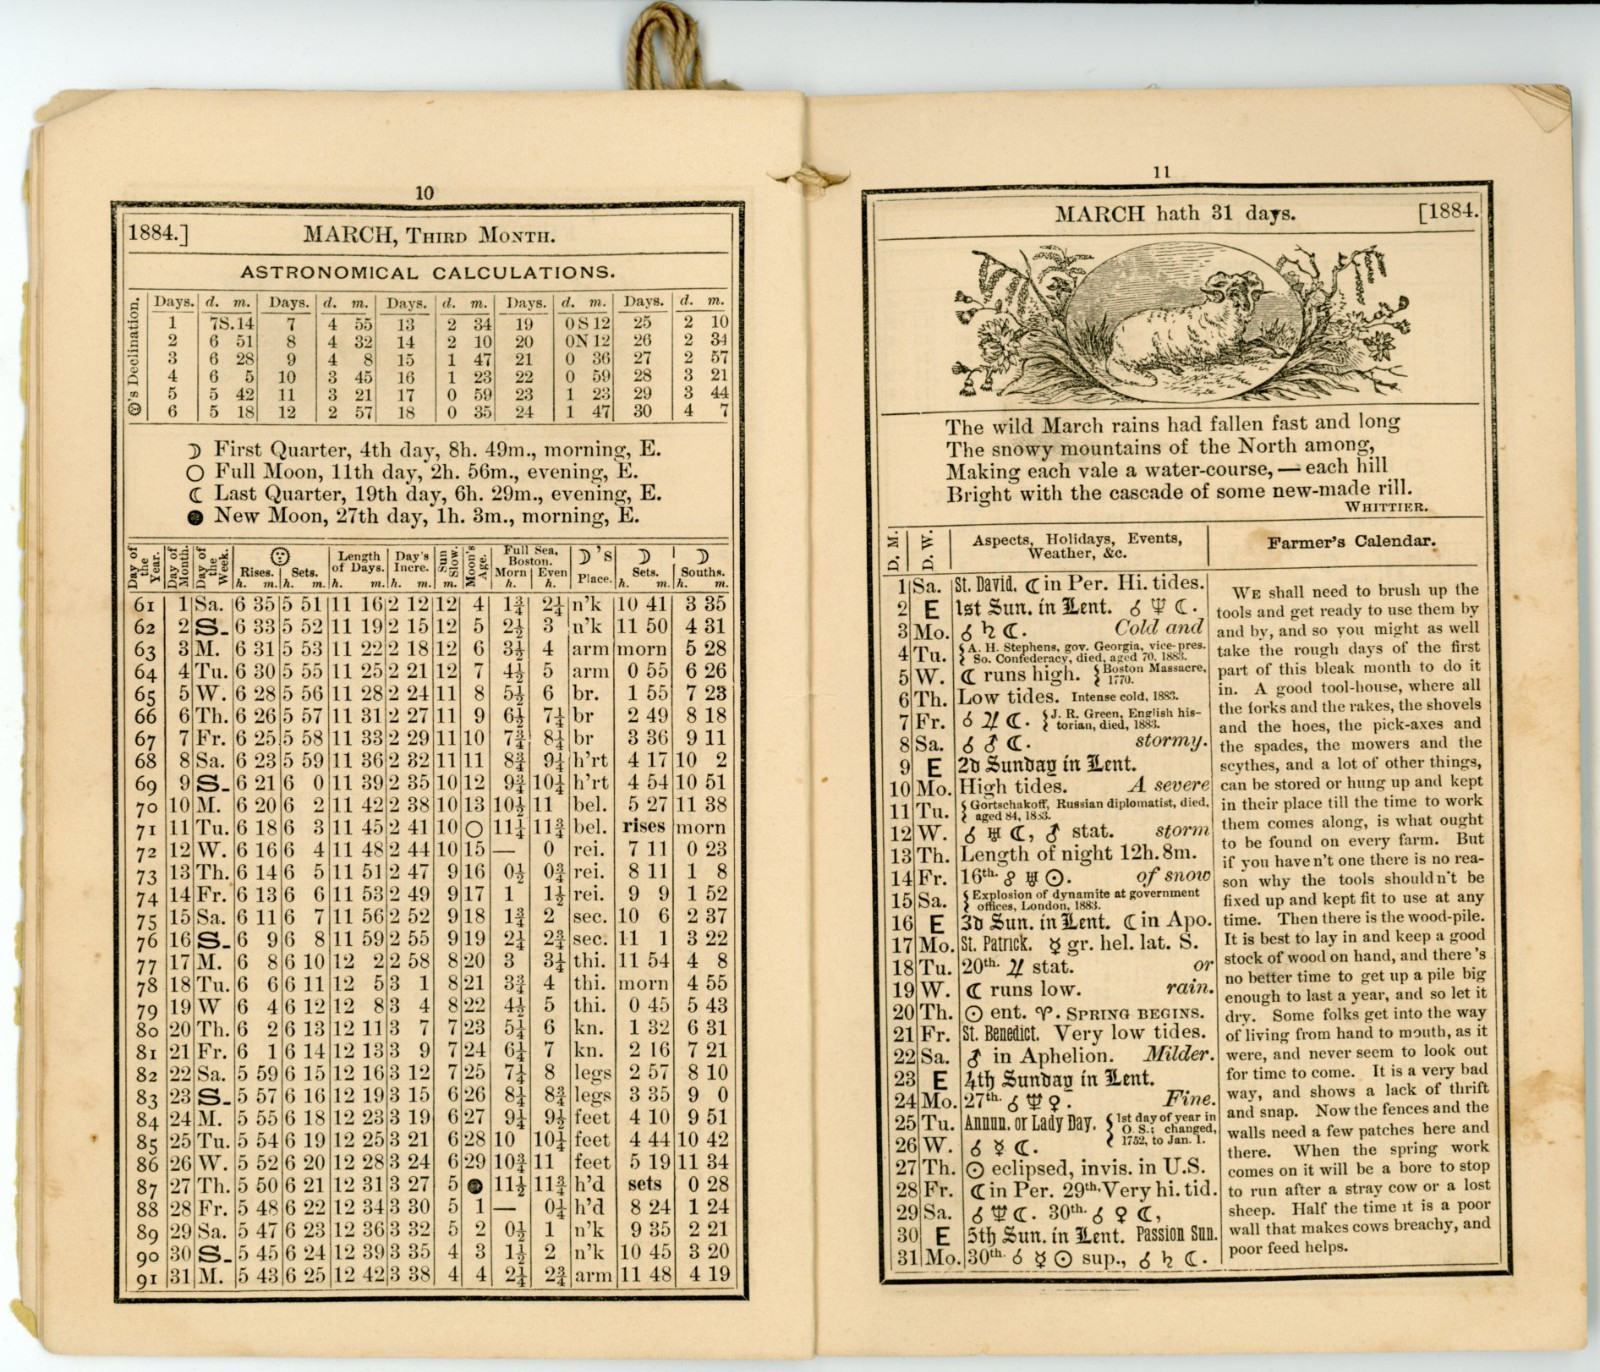 10
1884.] MARCH, THIRD MONTH.
ASTRONOMICAL CALCULATIONS.
☉'s Declination.
Days. d. m. Days. d. m. Days. d. m. Days. d. m. Days. d. m.
1 7S.14 7 4 55 13 2 34 19 0S12 25 2 10
2 6 51 8 4 32 14 2 10 20 0N12 26 2 34
3 6 28 9 4 8 15 1 47 21 0 36 27 2 57
4 6 5 10 3 45 16 1 23 22 0 59 28 3 21
5 5 42 11 3 21 17 0 59 23 1 23 29 3 44
6 5 18 12 2 57 18 0 35 24 1 47 30 4 7
☽ First Quarter, 4th day, 8h. 49m., morning, E.
○ Full Moon, 11th day, 2h. 56m., evening, E.
☾ Last Quarter, 19th day, 6h. 29m., evening, E.
● New Moon, 27th day, 1h. 3m., morning, E.
Day of the Year. Day of Month. Day of the Week. ☉ Rises. h. m. Sets. h. m. Length of Days. h. m. Day's Incre. h. m. Sun Slow. Moon's Age. Full Sea, Boston. Morn h. Even h. ☽'s Place. ☽ Sets. h. m. ☽ Souths. h. m.
61 1 Sa. 6 35 5 51 11 16 2 12 12 4 1¾ 2¼ n'k 10 41 3 35
62 2 S. 6 33 5 52 11 19 2 15 12 5 2½ 3 n'k 11 50 4 31
63 3 M. 6 31 5 53 11 22 2 18 12 6 3½ 4 arm morn 5 28
64 4 Tu. 6 30 5 55 11 25 2 21 12 7 4½ 5 arm 0 55 6 26
65 5 W. 6 28 5 56 11 28 2 24 11 8 5½ 6 br. 1 55 7 23
66 6 Th. 6 26 5 57 11 31 2 27 11 9 6½ 7¼ br 2 49 8 18
67 7 Fr. 6 25 5 58 11 33 2 29 11 10 7¾ 8¼ br 3 36 9 11
68 8 Sa. 6 23 5 59 11 36 2 32 11 11 8¾ 9¼ h'rt 4 17 10 2
69 9 S. 6 21 6 0 11 39 2 35 10 12 9¾ 10¼ h'rt 4 54 10 51
70 10 M. 6 20 6 2 11 42 2 38 10 13 10½ 11 bel. 5 27 11 38
71 11 Tu. 6 18 6 3 11 45 2 41 10 ○ 11¼ 11¾ bel. rises morn
72 12 W. 6 16 6 4 11 48 2 44 10 15 — 0 rei. 7 11 0 23
73 13 Th. 6 14 6 5 11 51 2 47 9 16 0½ 0¾ rei. 8 11 1 8
74 14 Fr. 6 13 6 6 11 53 2 49 9 17 1 1½ rei. 9 9 1 52
75 15 Sa. 6 11 6 7 11 56 2 52 9 18 1¾ 2 sec. 10 6 2 37
76 16 S. 6 9 6 8 11 59 2 55 9 19 2¼ 2¾ sec. 11 1 3 22
77 17 M. 6 8 6 10 12 2 2 58 8 20 3 3¼ thi. 11 54 4 8
78 18 Tu. 6 6 6 11 12 5 3 1 8 21 3¾ 4 thi. morn 4 55
79 19 W 6 4 6 12 12 8 3 4 8 22 4½ 5 thi. 0 45 5 43
80 20 Th. 6 2 6 13 12 11 3 7 7 23 5¼ 6 kn. 1 32 6 31
81 21 Fr. 6 1 6 14 12 13 3 9 7 24 6¼ 7 kn. 2 16 7 21
82 22 Sa. 5 59 6 15 12 16 3 12 7 25 7¼ 8 legs 2 57 8 10
83 23 S. 5 57 6 16 12 19 3 15 6 26 8¼ 8¾ legs 3 35 9 0
84 24 M. 5 55 6 18 12 23 3 19 6 27 9¼ 9½ feet 4 10 9 51
85 25 Tu. 5 54 6 19 12 25 3 21 6 28 10 10¼ feet 4 44 10 42
86 26 W. 5 52 6 20 12 28 3 24 6 29 10¾ 11 feet 5 19 11 34
87 27 Th. 5 50 6 21 12 31 3 27 5 ● 11½ 11¾ h'd sets 0 28
88 28 Fr. 5 48 6 22 12 34 3 30 5 1 — 0¼ h'd 8 24 1 24
89 29 Sa. 5 47 6 23 12 36 3 32 5 2 0½ 1 n'k 9 35 2 21
90 30 S. 5 45 6 24 12 39 3 35 4 3 1½ 2 n'k 10 45 3 20
91 31 M. 5 43 6 25 12 42 3 38 4 4 2¼ 2¾ arm 11 48 4 19
11
MARCH hath 31 days. [1884.
The wild March rains had fallen fast and long
The snowy mountains of the North among,
Making each vale a water-course, — each hill
Bright with the cascade of some new-made rill.
WHITTIER.
D. M. D. W. Aspects, Holidays, Events, Weather, &c.
1 Sa. St. David. ☾ in Per. Hi. tides.
2 E 1st Sun. in Lent. ☌ ♆ ☾.
3 Mo. ☌ ♄ ☾. Cold and
4 Tu. { A. H. Stephens, gov. Georgia, vice-pres. So. Confederacy, died, aged 70, 1883.
5 W. ☾ runs high. { Boston Massacre, 1770.
6 Th. Low tides. Intense cold, 1883.
7 Fr. ☌ ♃ ☾. { J. R. Green, English historian, died, 1883.
8 Sa. ☌ ♂ ☾. stormy.
9 E 2d Sunday in Lent.
10 Mo. High tides. A severe
11 Tu. { Gortschakoff, Russian diplomatist, died, aged 84, 1883.
12 W. ☌ ♅ ☾, ♂ stat. storm
13 Th. Length of night 12h. 8m.
14 Fr. 16th. ☍ ♅ ☉. of snow
15 Sa. { Explosion of dynamite at government offices, London, 1883.
16 E 3d Sun. in Lent. ☾ in Apo.
17 Mo. St. Patrick. ☿ gr. hel. lat. S.
18 Tu. 20th. ♃ stat. or
19 W. ☾ runs low. rain.
20 Th. ☉ ent. ♈. SPRING BEGINS.
21 Fr. St. Benedict. Very low tides.
22 Sa. ♂ in Aphelion. Milder.
23 E 4th Sunday in Lent.
24 Mo. 27th. ☌ ♆ ♀. Fine.
25 Tu. Annun. or Lady Day. { 1st day of year in O. S.; changed, 1752, to Jan. 1.
26 W. ☌ ☿ ☾.
27 Th. ☉ eclipsed, invis. in U.S.
28 Fr. ☾ in Per. 29th. Very hi. tid.
29 Sa. ☌ ♆ ☾. 30th. ☌ ♀ ☾,
30 E 5th Sun. in Lent. Passion Sun.
31 Mo. 30th. ☌ ☿ ☉ sup., ☌ ♄ ☾.
Farmer's Calendar.
WE shall need to brush up the
tools and get ready to use them by
and by, and so you might as well
take the rough days of the first
part of this bleak month to do it
in. A good tool-house, where all
the forks and the rakes, the shovels
and the hoes, the pick-axes and
the spades, the mowers and the
scythes, and a lot of other things,
can be stored or hung up and kept
in their place till the time to work
them comes along, is what ought
to be found on every farm. But
if you haven't one there is no rea-
son why the tools shouldn't be
fixed up and kept fit to use at any
time. Then there is the wood-pile.
It is best to lay in and keep a good
stock of wood on hand, and there's
no better time to get up a pile big
enough to last a year, and so let it
dry. Some folks get into the way
of living from hand to mouth, as it
were, and never seem to look out
for time to come. It is a very bad
way, and shows a lack of thrift
and snap. Now the fences and the
walls need a few patches here and
there. When the spring work
comes on it will be a bore to stop
to run after a stray cow or a lost
sheep. Half the time it is a poor
wall that makes cows breachy, and
poor feed helps.